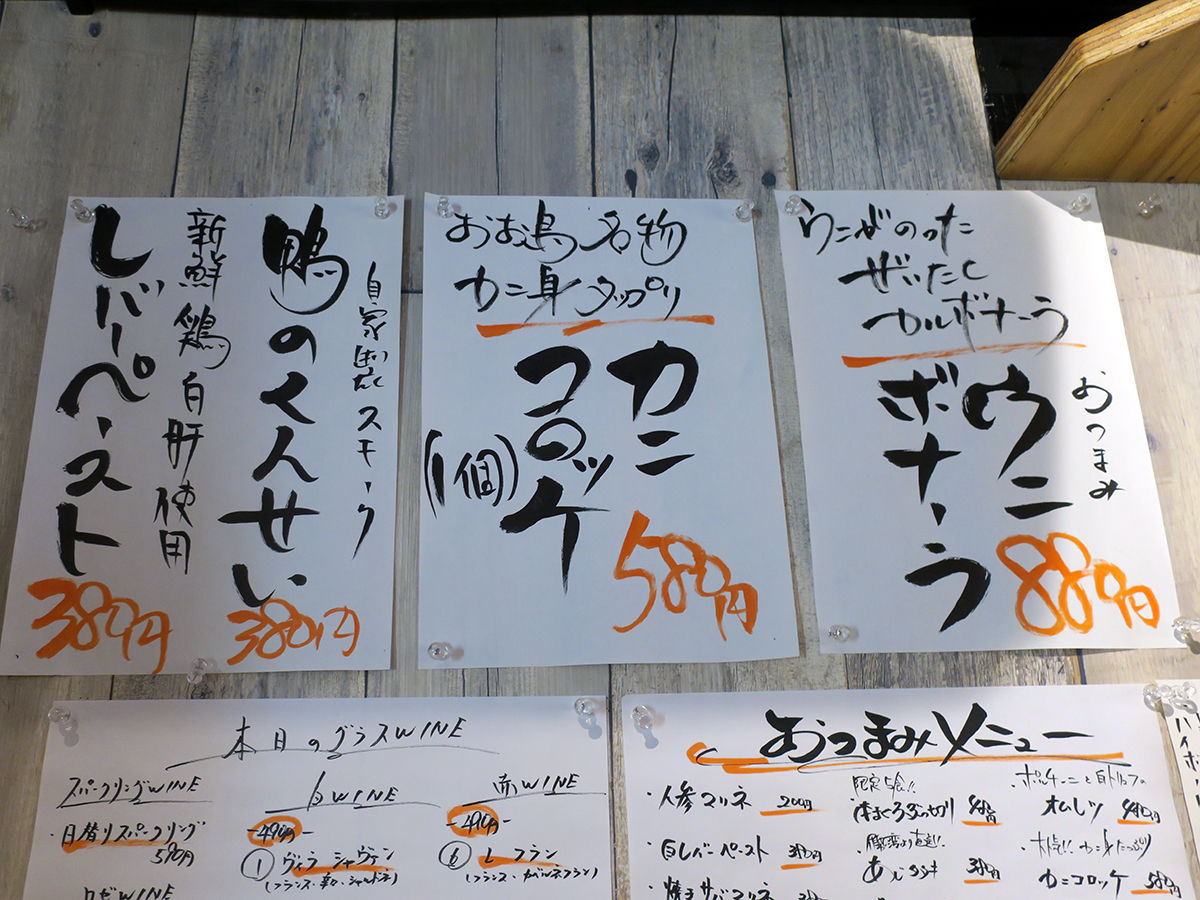 自家製 スモーク
鴨のくんせい
380円
新鮮鶏白肝使用
レバーペースト
380円
おお鳥名物
カニ身タップリ
カニ
コロッケ
(1個)
580円
うにがのった
ぜいたく
カルボナーラ
おつまみ
ウニ
ボナーラ
880円
本日のグラスWINE
スパークリングWINE
・日替りスパークリング
580円
ロゼWINE
白WINE
-490円-
① ヴィラ シャヴァン
赤WINE
-490円-
⑥ レ フラン
おつまみメニュー
・人参マリネ 200円
・白レバーペースト 380円
・焼きサバマリネ
限定5食!!
本まぐろぶつ切り
あじタタキ 380円
・ポルチーニと白トリュフの
オムレツ
カニコロッケ 580円